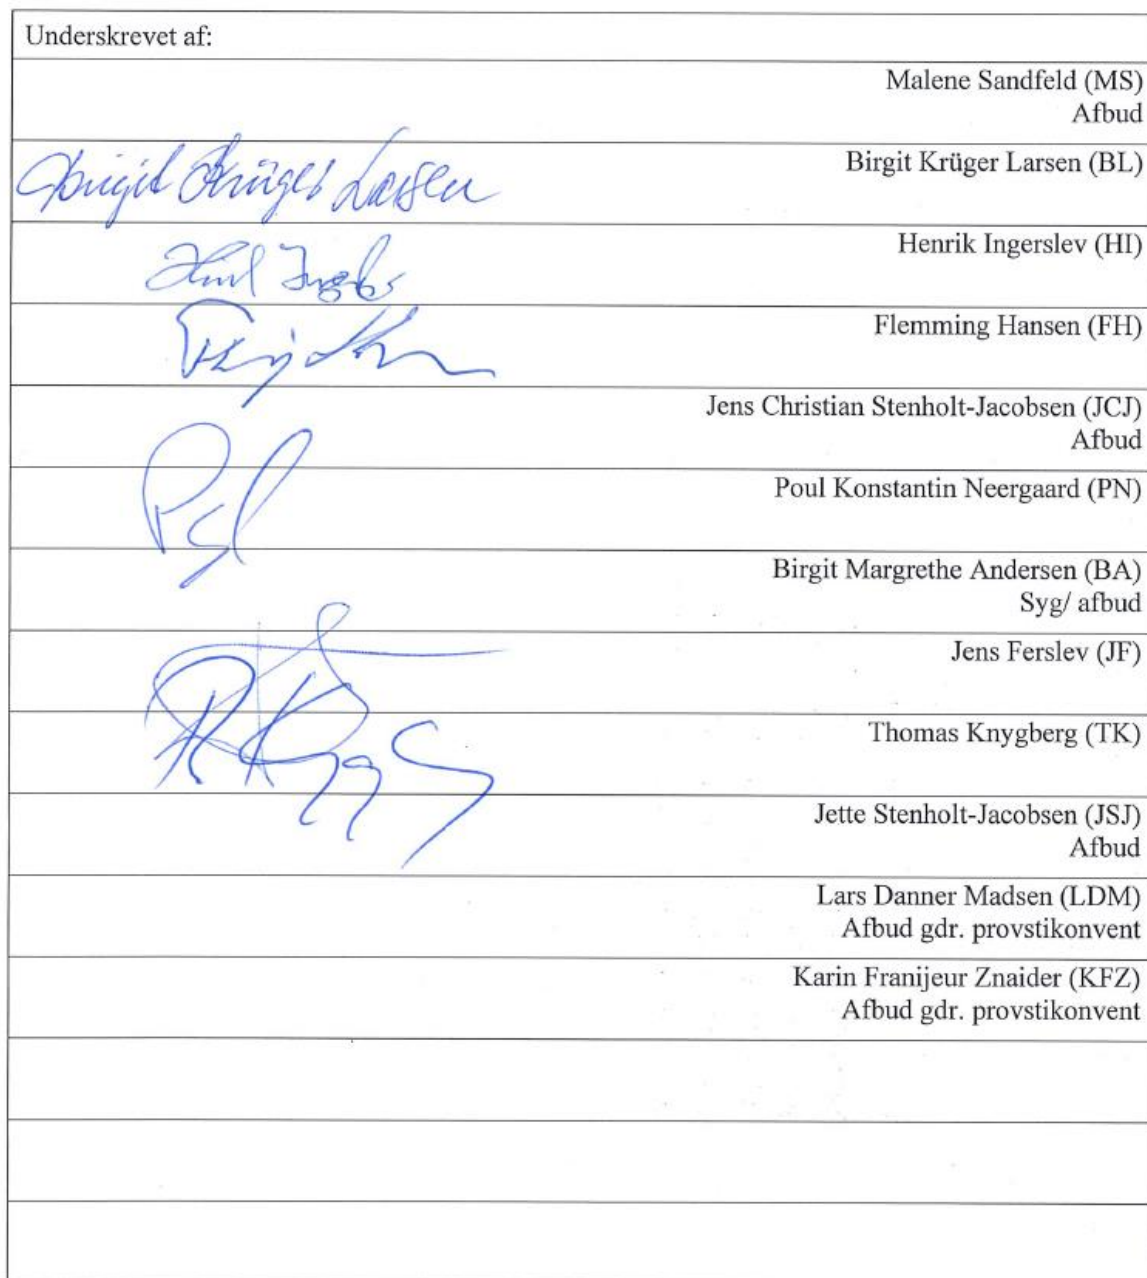 Underskrevet af:
Malene Sandfeld (MS)
Afbud
Birgit Krüger Larsen
Birgit Krüger Larsen (BL)
Henrik Ingerslev (HI)
Flemming Hansen (FH)
Jens Christian Stenholt-Jacobsen (JCJ)
Afbud
Poul Konstantin Neergaard (PN)
Birgit Margrethe Andersen (BA)
Syg/ afbud
Jens Ferslev (JF)
Thomas Knygberg (TK)
Jette Stenholt-Jacobsen (JSJ)
Afbud
Lars Danner Madsen (LDM)
Afbud gdr. provstikonvent
Karin Franijeur Znaider (KFZ)
Afbud gdr. provstikonvent